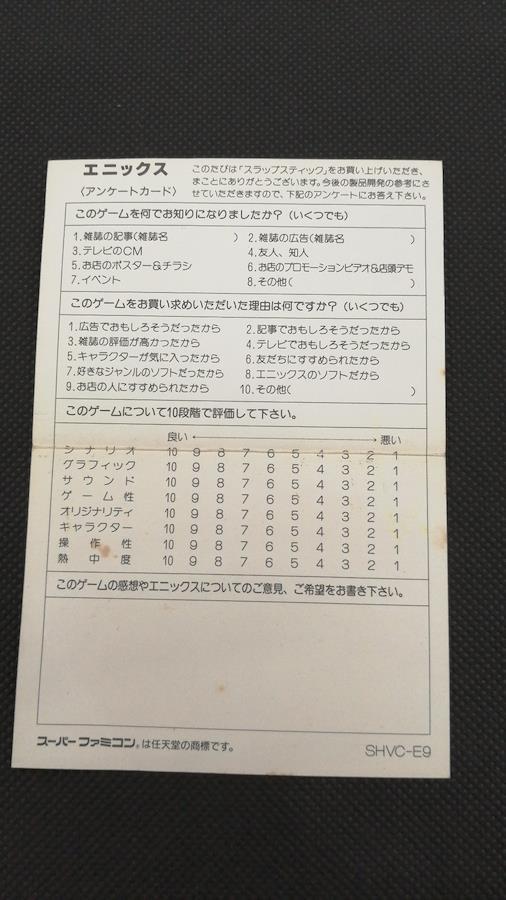 エニックス
〈アンケートカード〉
このたびは「スラップスティック」をお買い上げいただき、
まことにありがとうございます。今後の製品開発の参考にさ
せていただきますので、下記のアンケートにお答え下さい。
このゲームを何でお知りになりましたか?(いくつでも)
1.雑誌の記事(雑誌名 ) 2.雑誌の広告(雑誌名 )
3.テレビのCM 4.友人、知人
5.お店のポスター&チラシ 6.お店のプロモーションビデオ&店頭デモ
7.イベント 8.その他( )
このゲームをお買い求めいただいた理由は何ですか?(いくつでも)
1.広告でおもしろそうだったから 2.記事でおもしろそうだったから
3.雑誌の評価が高かったから 4.テレビでおもしろそうだったから
5.キャラクターが気に入ったから 6.友だちにすすめられたから
7.好きなジャンルのソフトだったから 8.エニックスのソフトだから
9.お店の人にすすめられたから 10.その他( )
このゲームについて10段階で評価して下さい。
良い 悪い
シナリオ 10 9 8 7 6 5 4 3 2 1
グラフィック 10 9 8 7 6 5 4 3 2 1
サウンド 10 9 8 7 6 5 4 3 2 1
ゲーム性 10 9 8 7 6 5 4 3 2 1
オリジナリティ 10 9 8 7 6 5 4 3 2 1
キャラクター 10 9 8 7 6 5 4 3 2 1
操作性 10 9 8 7 6 5 4 3 2 1
熱中度 10 9 8 7 6 5 4 3 2 1
このゲームの感想やエニックスについてのご意見、ご希望をお書き下さい。
スーパーファミコン®は任天堂の商標です。
SHVC-E9